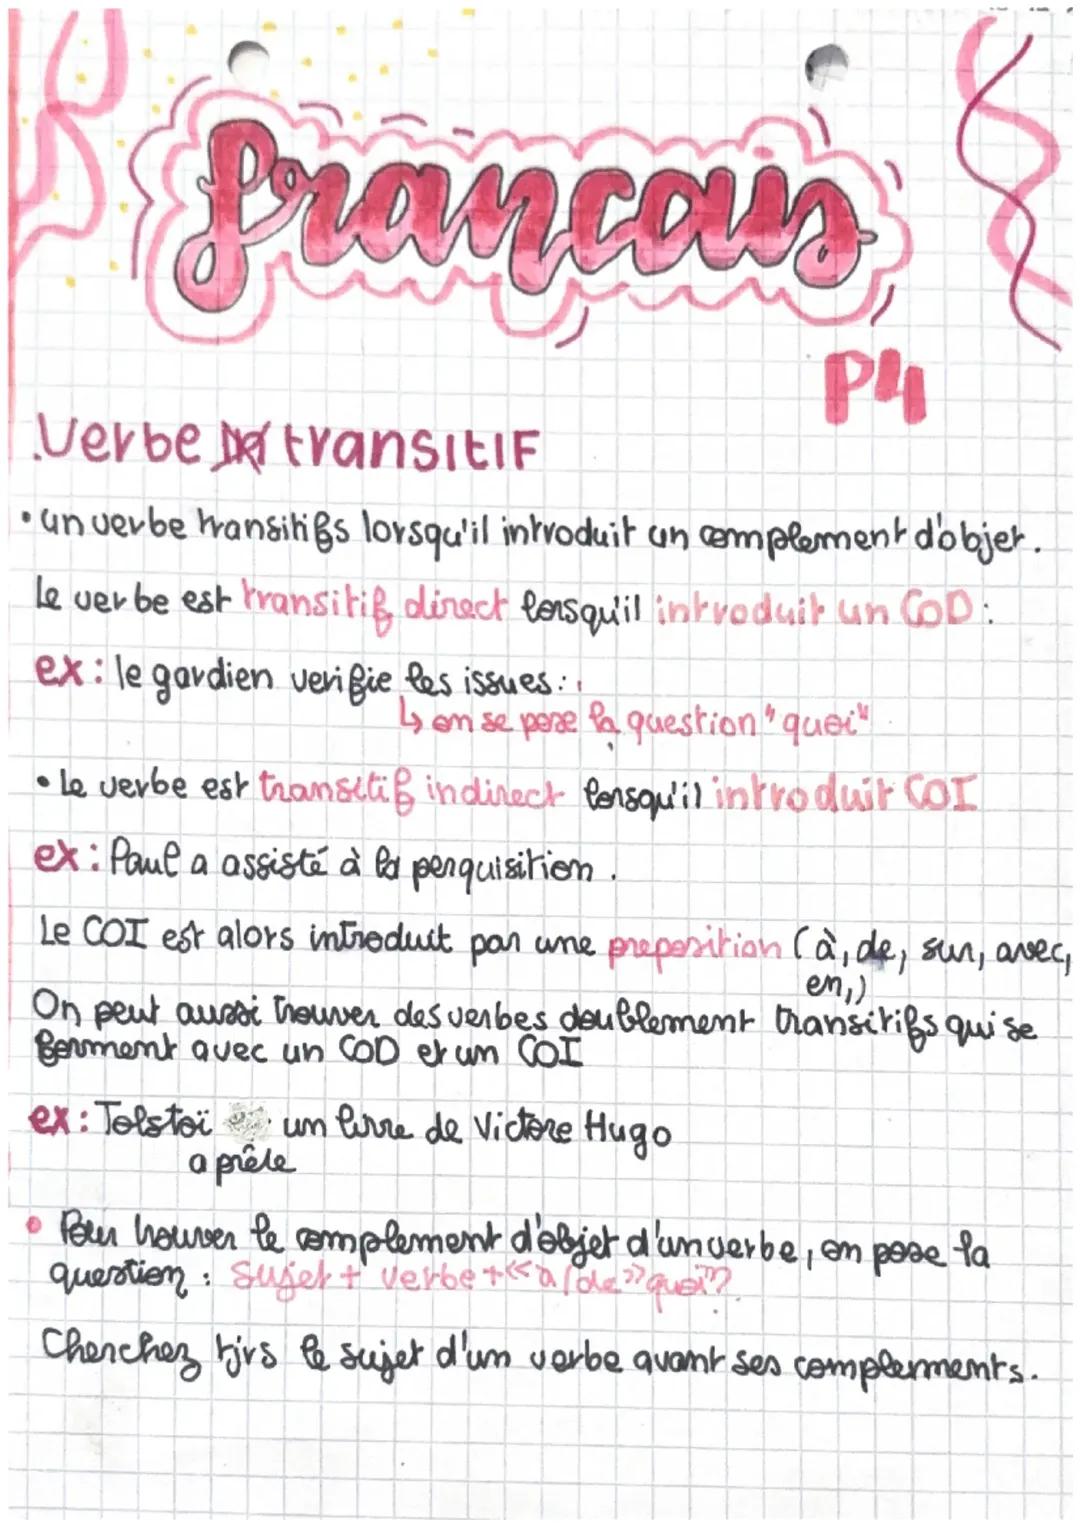 francais
P4
Verbe transitif
• un verbe transitifs lorsqu'il introduit un complement d'objet.
Le verbe est transitif direct lorsqu'il introduit un COD :
ex : le gardien verifie les issues :
↳ on se pose la question "quoi"
• Le verbe est transitif indirect lorsqu'il introduit COI
ex : Paul a assisté à la perquisition .
Le COI est alors introduit par une preposition (à, de, sur, avec,
en,)
On peut aussi trouver des verbes doublement transitifs qui se
ferment avec un COD et un COI
ex : Tolstoï un livre de Victore Hugo
a prêle
• Pour trouver le complement d'objet d'un verbe, on pose la
question : Sujet + verbe + « à / de » quoi ?
Cherchez tjrs le sujet d'un verbe avant ses complements.